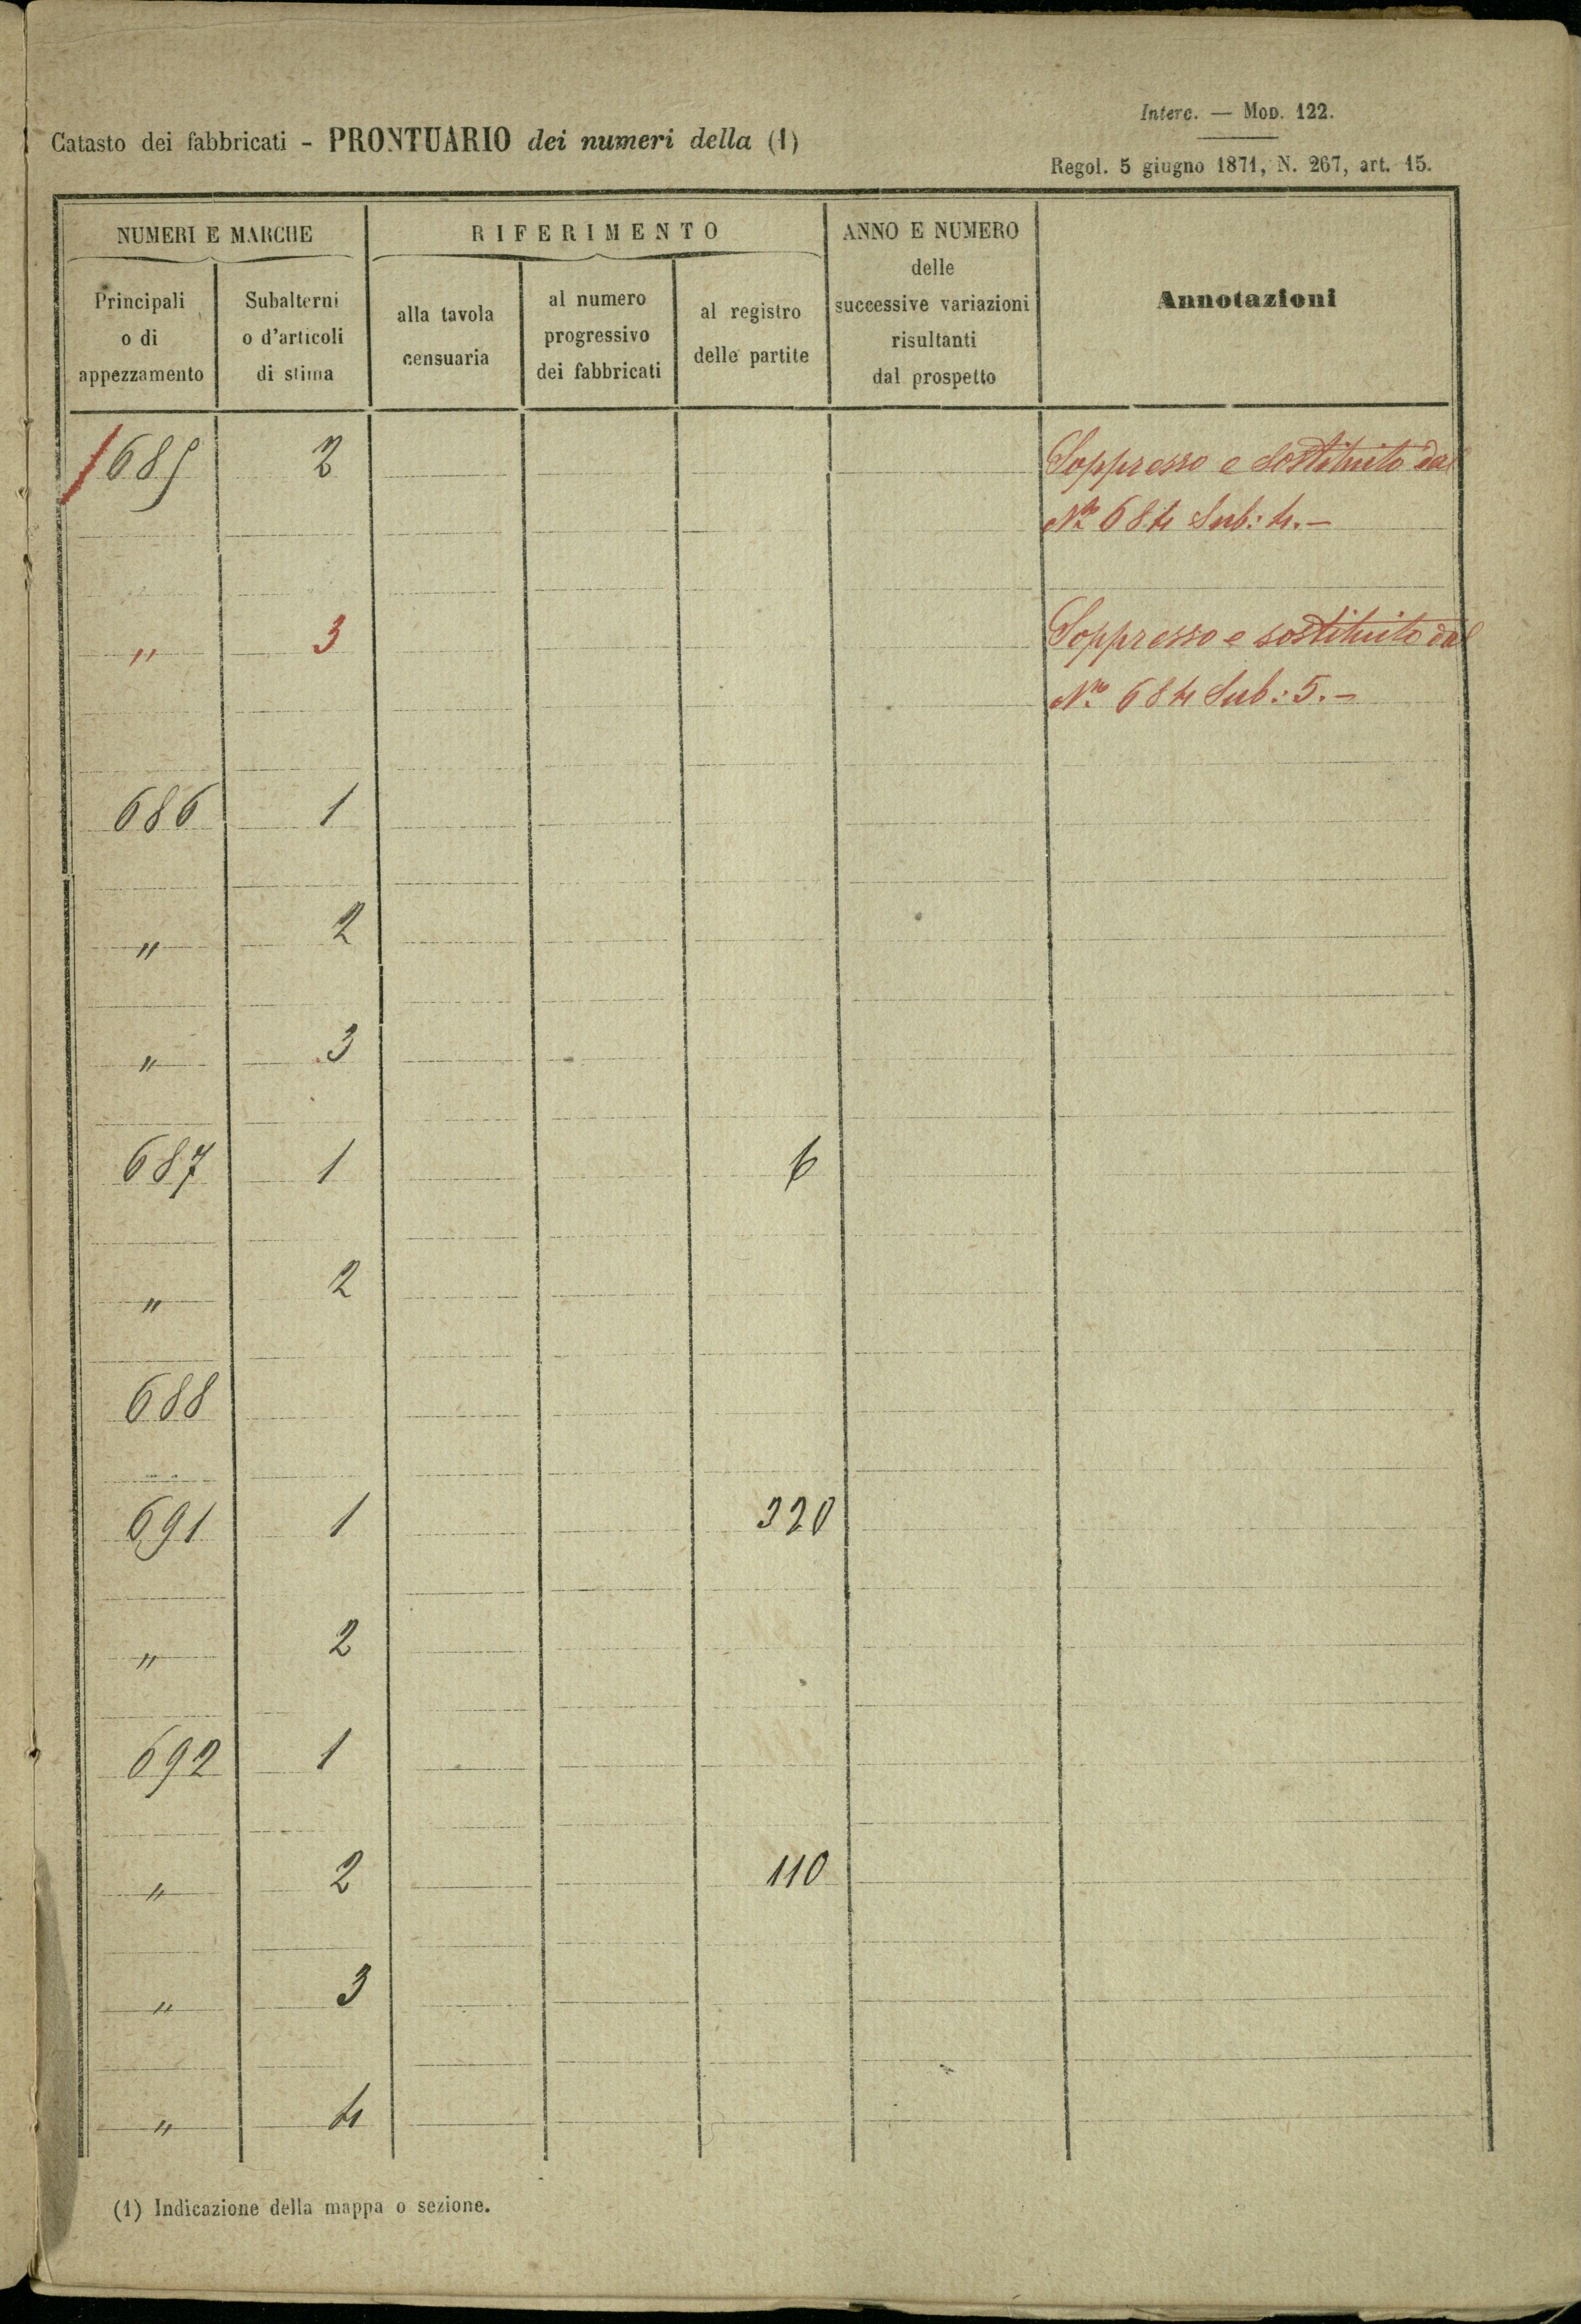 Interc. — Mod. 122.
Catasto dei fabbricati - PRONTUARIO dei numeri della (1)
Regol. 5 giugno 1871, N. 267, art. 15.
NUMERI E MARCHE
RIFERIMENTO
ANNO E NUMERO
delle
successive variazioni
risultanti
dal prospetto
Annotazioni
Principali
o di
appezzamento
Subalterni
o d'articoli
di stima
alla tavola
censuaria
al numero
progressivo
dei fabbricati
al registro
delle partite
685 2 Soppresso e sostituito dal
No. 684 Sub: 4.-
" 3 Soppresso e sostituito dal
No. 684 Sub: 5.-
686 1
" 2
" 3
687 1 6
" 2
688
691 1 320
" 2
692 1
" 2 110
" 3
" 4
(1) Indicazione della mappa o sezione.